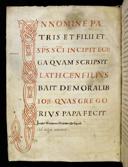 IN NOMINE PA
TRIS ET FILII ET
SPS SCI INCIPIT EGLO
GA QUAM SCRIPSIT
LATHCEN FILIUS
BAIT DE MORALIB
IOB QUAS GREGO
RIUS PAPA FECIT